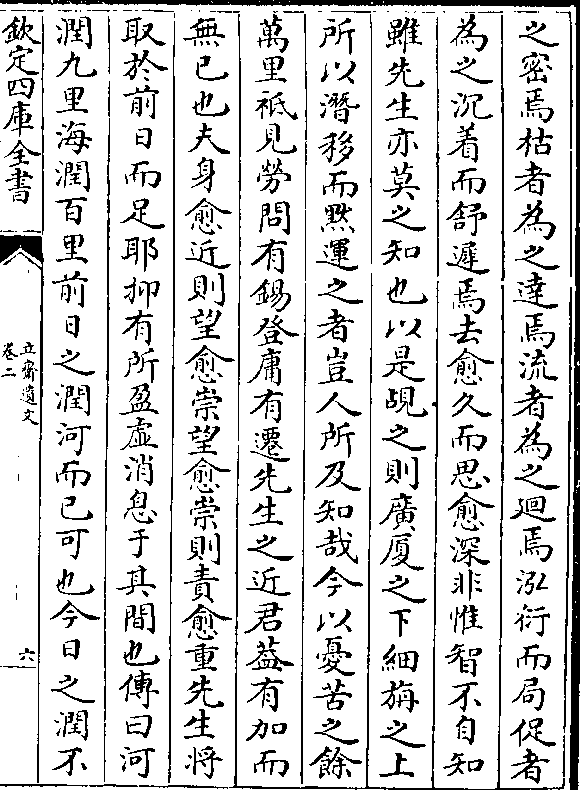 之密焉枯者為之達焉流者為之廻焉泓衍而局促者
為之沉着而舒遲焉去愈久而思愈深非惟智不自知
雖先生亦莫之知也以是覘之則廣厦之下細旃之上
所以潛移而黙運之者豈人所及知哉今以憂苦之餘
萬里祗見勞問有錫登庸有遷先生之近君葢有加而
無已也夫身愈近則望愈崇望愈崇則責愈重先生將
取於前日而足耶抑有所盈虚消息于其間也傳曰河
潤九里海潤百里前日之潤河而已可也今日之潤不
欽定四庫全書
立齋遺文
卷二
六